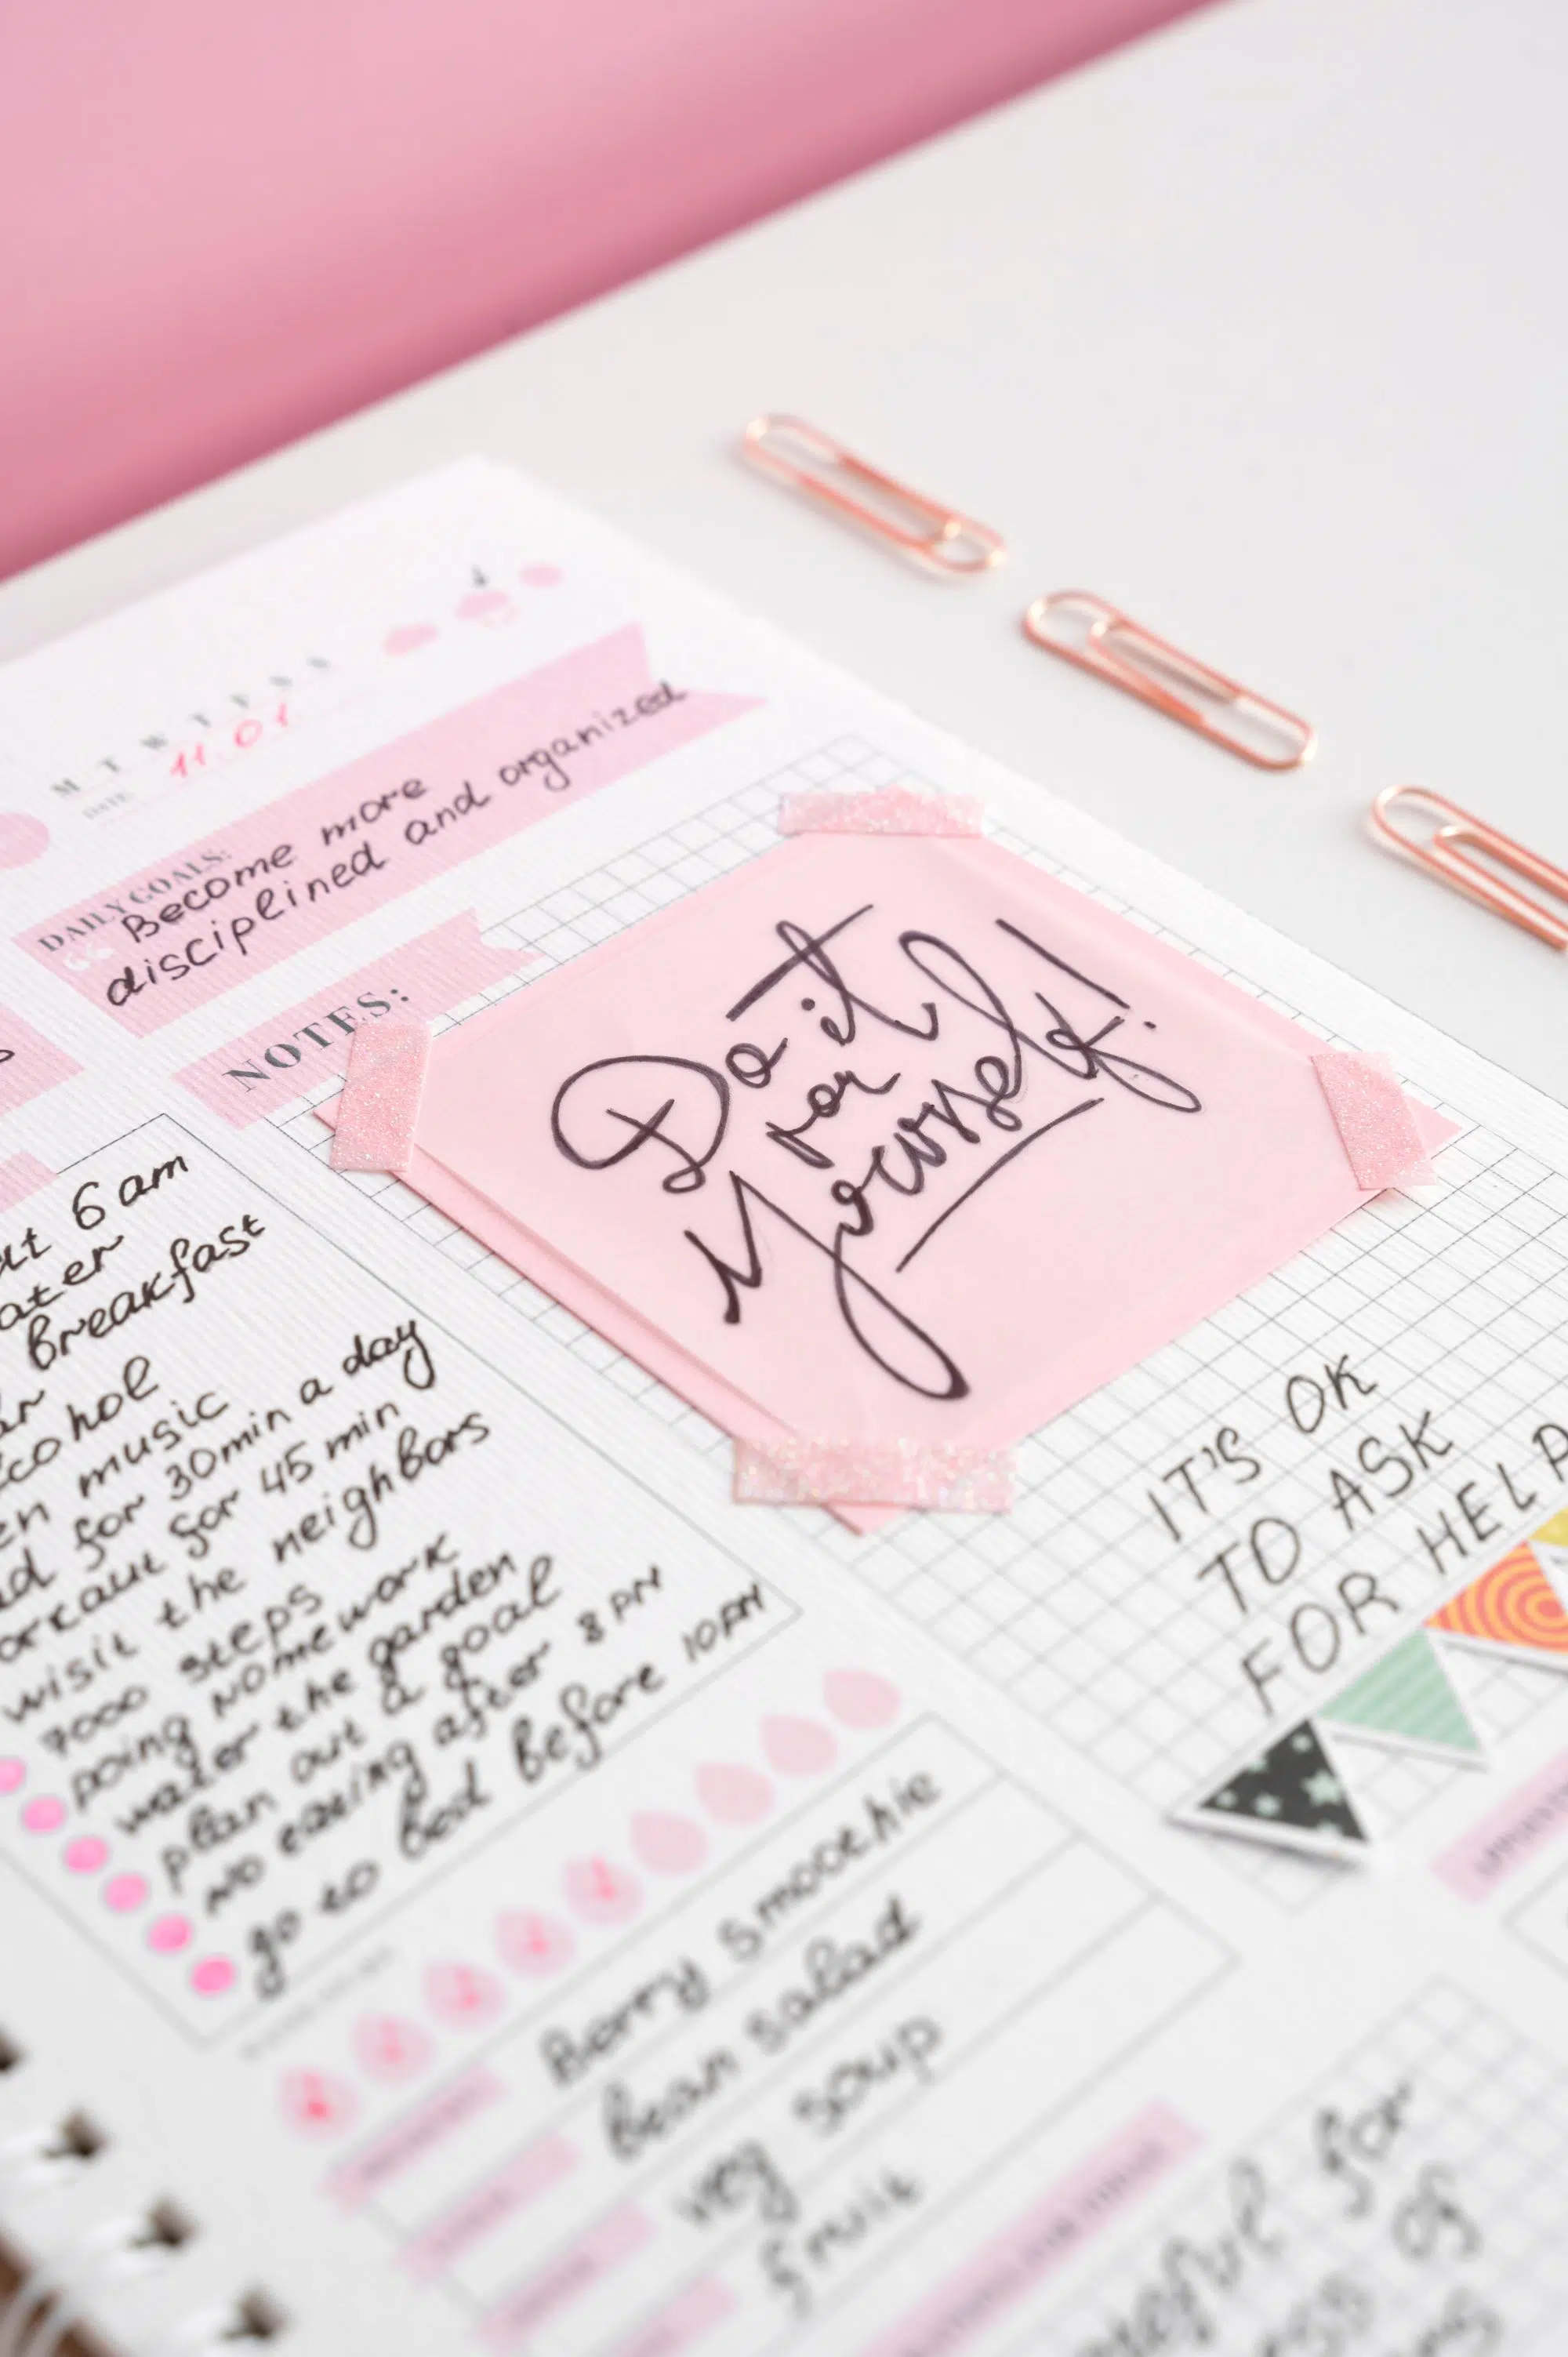 M T W T F S S
DATE
11.01
DAILY GOALS:
Become more
disciplined and organized
NOTES:
Do it
for
Yourself!
6 am
breakfast
music
for 30min a day
for 45 min
wisit the neighbors
7000 steps
doing homework
water the garden
plan out a goal
no eating after 8 PM
go to bed before 10PM
IT'S OK
TO ASK
FOR HELP
Berry smoothie
bean salad
veg soup
fruit
for
of